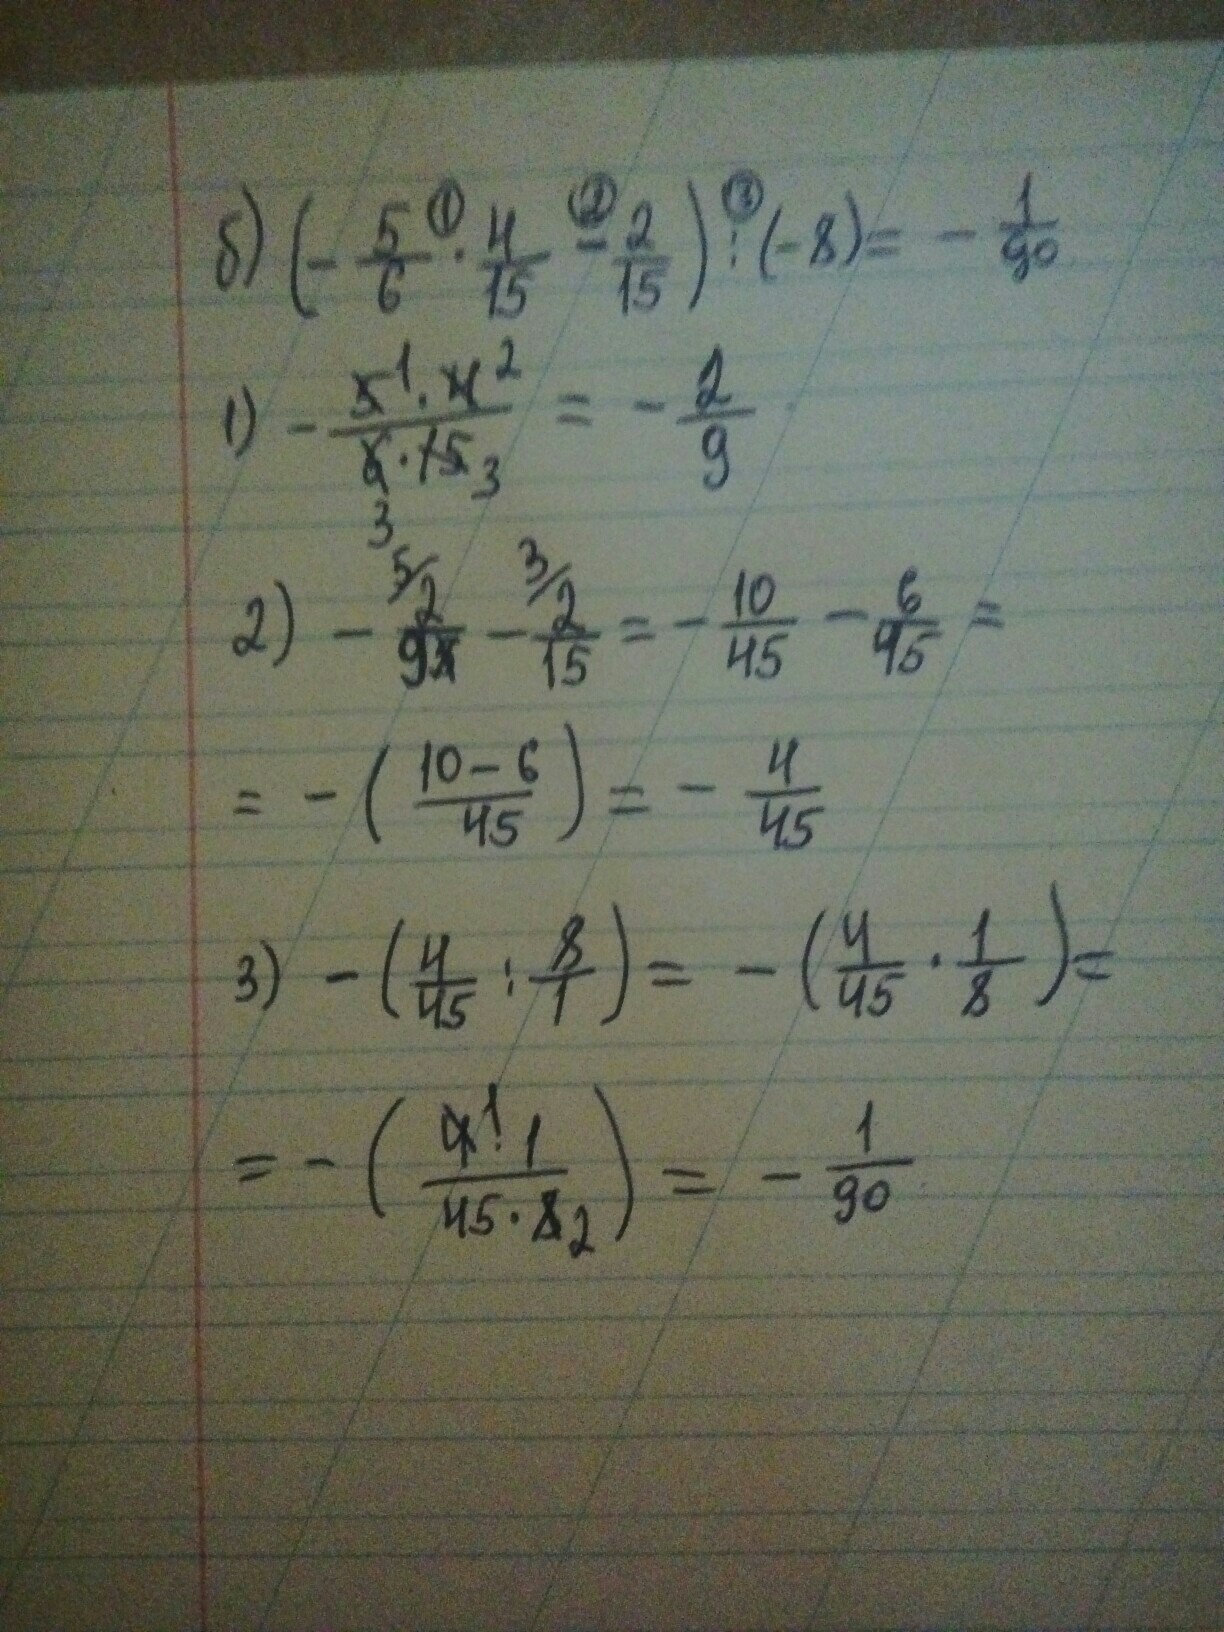 б) (- 5/6 ① · 4/15 ② - 2/15) ③ : (-8) = - 1/90
1) - 5¹ · 4² / 6₃ · 15₃ = - 2/9
2) - ⁵⁄2/9 - ³⁄2/15 = - 10/45 - 6/45 =
= - (10 - 6 / 45) = - 4/45
3) - (4/45 : 8/1) = - (4/45 · 1/8) =
= - (4¹ · 1 / 45 · 8₂) = - 1/90